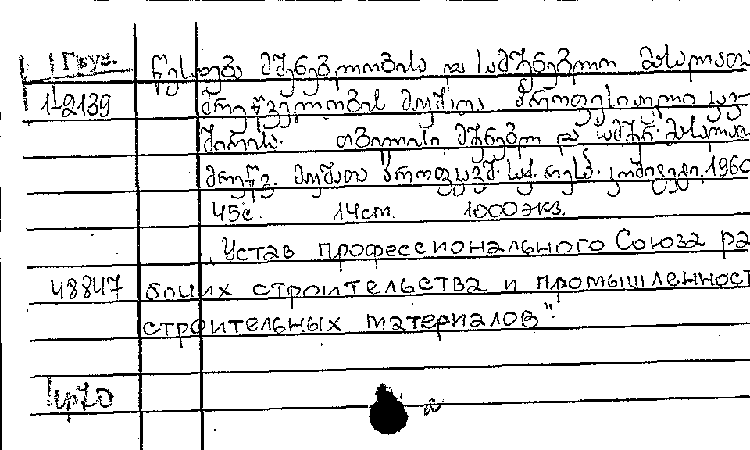 Груз. წესდება მშენებლობისა და სამშენებლო მასალათა
1-2139 მრეწველობის მუშათა პროფესიული კავ-
შირისა. თბილისი მშენებლ. და სამშ. მასალათა
მრეწვ. მუშათა პროფკავშ. საქ. რესპ. კომიტეტი, 1960
45с. 14ст. 1000 экз.
„Устав профессионального Союза ра
48847 бочих строительства и промышленност
строительных материалов".